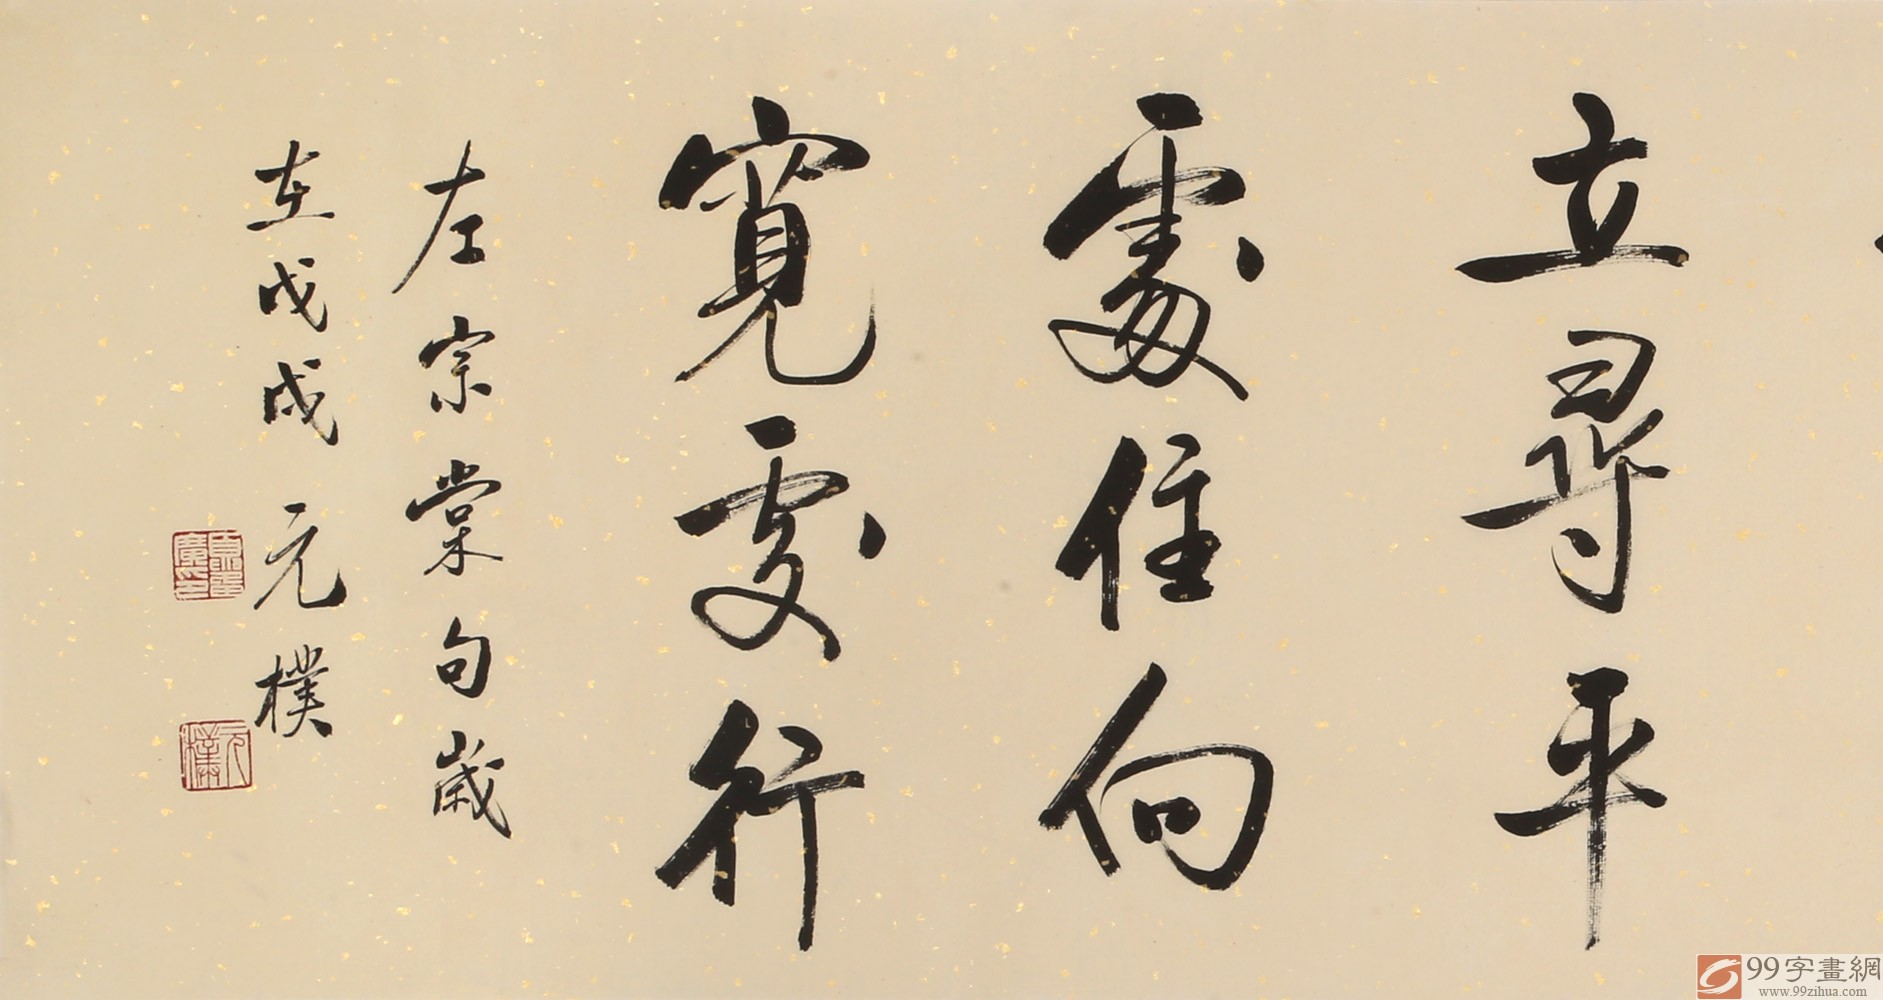 立尋平
處住向
寬處行
左宗棠句歲
在戊戌元樸
元樸
99字畫網
www.99zihua.com